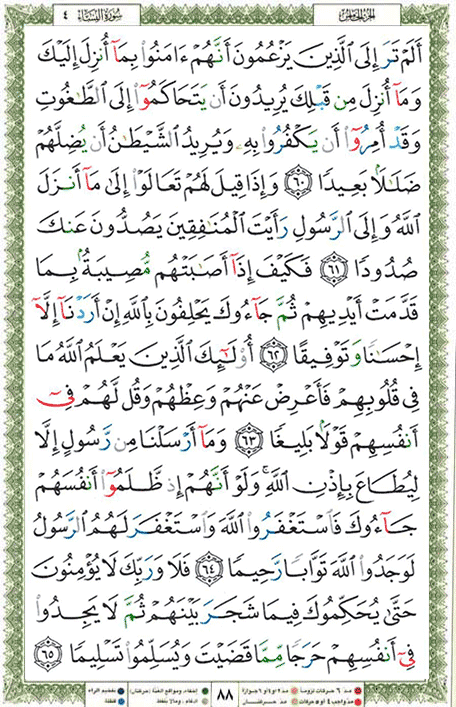 الجزء الخامس
سورة النساء ٤
أَلَمْ تَرَ إِلَى ٱلَّذِينَ يَزْعُمُونَ أَنَّهُمْ ءَامَنُوا۟ بِمَآ أُنزِلَ إِلَيْكَ
وَمَآ أُنزِلَ مِن قَبْلِكَ يُرِيدُونَ أَن يَتَحَاكَمُوٓا۟ إِلَى ٱلطَّـٰغُوتِ
وَقَدْ أُمِرُوٓا۟ أَن يَكْفُرُوا۟ بِهِۦ وَيُرِيدُ ٱلشَّيْطَـٰنُ أَن يُضِلَّهُمْ
ضَلَـٰلًۢا بَعِيدًا ٦٠ وَإِذَا قِيلَ لَهُمْ تَعَالَوْا۟ إِلَىٰ مَآ أَنزَلَ
ٱللَّهُ وَإِلَى ٱلرَّسُولِ رَأَيْتَ ٱلْمُنَـٰفِقِينَ يَصُدُّونَ عَنكَ
صُدُودًا ٦١ فَكَيْفَ إِذَآ أَصَـٰبَتْهُم مُّصِيبَةٌۢ بِمَا
قَدَّمَتْ أَيْدِيهِمْ ثُمَّ جَآءُوكَ يَحْلِفُونَ بِٱللَّهِ إِنْ أَرَدْنَآ إِلَّآ
إِحْسَـٰنًا وَتَوْفِيقًا ٦٢ أُو۟لَـٰٓئِكَ ٱلَّذِينَ يَعْلَمُ ٱللَّهُ مَا
فِى قُلُوبِهِمْ فَأَعْرِضْ عَنْهُمْ وَعِظْهُمْ وَقُل لَّهُمْ فِىٓ
أَنفُسِهِمْ قَوْلًۢا بَلِيغًا ٦٣ وَمَآ أَرْسَلْنَا مِن رَّسُولٍ إِلَّا
لِيُطَاعَ بِإِذْنِ ٱللَّهِ ۚ وَلَوْ أَنَّهُمْ إِذ ظَّلَمُوٓا۟ أَنفُسَهُمْ
جَآءُوكَ فَٱسْتَغْفَرُوا۟ ٱللَّهَ وَٱسْتَغْفَرَ لَهُمُ ٱلرَّسُولُ
لَوَجَدُوا۟ ٱللَّهَ تَوَّابًا رَّحِيمًا ٦٤ فَلَا وَرَبِّكَ لَا يُؤْمِنُونَ
حَتَّىٰ يُحَكِّمُوكَ فِيمَا شَجَرَ بَيْنَهُمْ ثُمَّ لَا يَجِدُوا۟
فِىٓ أَنفُسِهِمْ حَرَجًا مِّمَّا قَضَيْتَ وَيُسَلِّمُوا۟ تَسْلِيمًا ٦٥
مد ٦ حركات لزوماً مد ٢ أو ٤ أو ٦ جوازاً إخفاء، ومواقع الغنة (حركتان) تفخيم الراء
٨٨
مد واجب ٤ أو ٥ حركات مد حركتان إدغام، وما لا يلفظ قلقلة